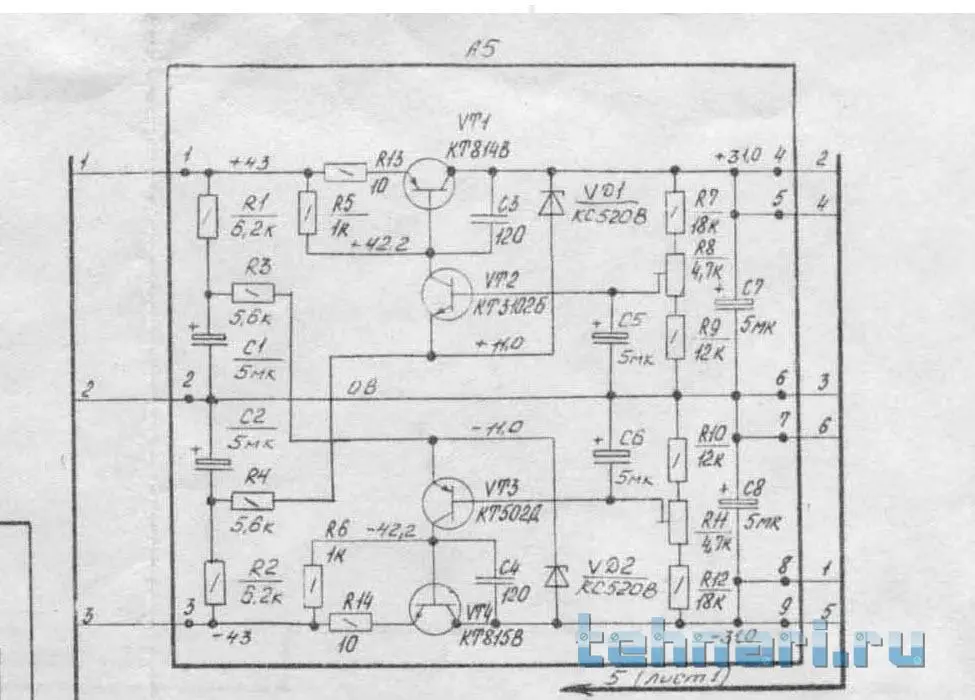 А5
VT1
КТ814В
1
1
+43
R13
10
+31,0
4
2
R1
6,2к
R5
1к
C3
120
VD1
КС520В
R7
18к
5
4
+42,2
R8
4,7к
R3
5,6к
VT2
КТ3102Б
+
C7
5мк
+
C1
5мк
+11,0
+
C5
5мк
R9
12к
2
2
0В
6
3
C2
5мк
+
-11,0
+
C6
5мк
R10
12к
7
6
R4
5,6к
VT3
КТ502Д
+
C8
5мк
R11
4,7к
R6
1к
-42,2
R2
6,2к
C4
120
VD2
КС520В
R12
18к
8
1
3
3
-43
R14
10
VT4
КТ815В
-31,0
9
5
tehnari.ru
5 (лист 1)